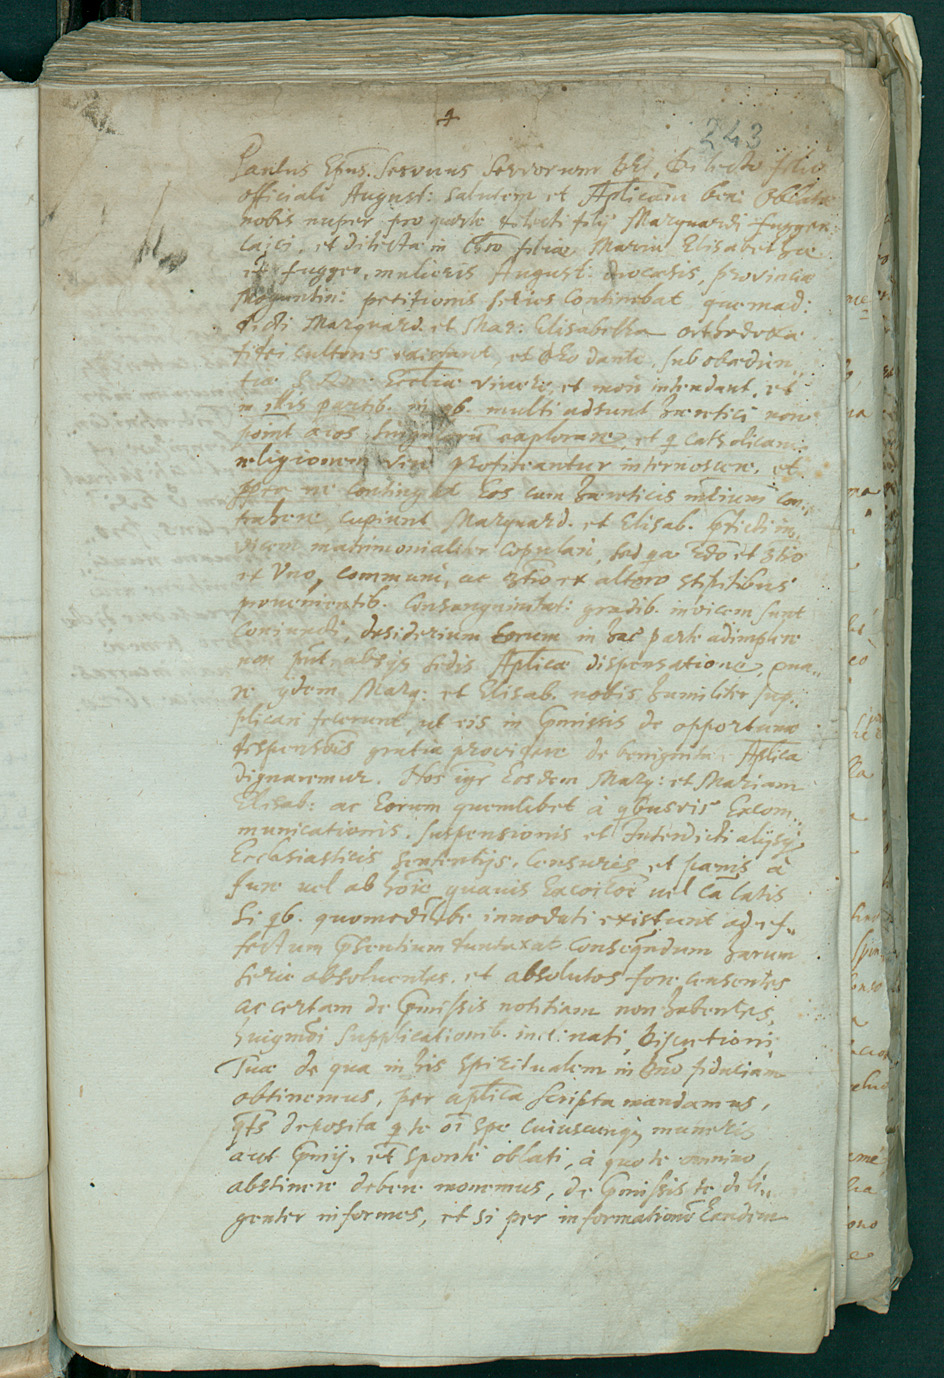 +
243
Paulus Epus. Servus Servorum Dei, Dilecto filio
officiali August: salutem et Aplicam ben: Oblata
nobis nuper pro parte dilecti filij Marquardi fugger
laici, et dilectae in Chro filiae Mariae Elisabethae
et fugger, mulieris August: diocesis, provinciae
Moguntin: petitionis series continebat quemad:
dicti Marquard. et Mar: Elisabetha orthodoxae
fidei cultores existant, et Deo dante, sub obedien„
tia Eccliae vivere et mori intendant, et
in illis partib. in qb. multi adsunt haeretici non
point eos singulorū explorare, et q catholicam
religionem vere profiteantur internoscere, et
porro ne contingat Eos cum haereticis mrium con„
trahere cupiunt Marquard. et Elisab. pdicti in„
vicem matrimonialiter copulari, sed qa 2do et 3tio
et Uno, communi, ac 3tio ex altero stipitibus
provenientib. consanguinitat: gradib. invicem sunt
coniuncti, desiderium Eorum in hac parte adimplere
non pnt absq; sedis Aplicae dispensatione, qua„
re ydem Marq: et Elisab. nobis humiliter sup„
plicari fecerunt, ut eis in pmissis de opportunae
dispensōis gratia providere de benignitate Aplica
dignaremur. Nos igr Eosdem Marq: et Mariam
Elisab: ac Eorum quemlibet à qbusvis Excom„
municationis, suspensionis et Interdicti alijsq;
Ecclesiasticis sententijs, Censuris et paenis à
Jure vel ab hoīe quavis occōe vel cā latis
si qb. quomodōlibet innodati existunt ad ef„
fectum pñsentium tantaxat consequndum harum
serie absolventes, et absolutos fore censentes
ac certam de pmissis notitiam non habentes,
huiqmōi supplicationib. inclinati, Discretioni
Tuae de qua in his spiritualem in Dno fiduciam
obtinemus, per aplica scripta mandamus,
qts deposita p te oī spe cuiuscunq; muneris
aut pmij, etc sponte oblati, à quo te omnino
abstinere debere monemus, de pmissis te dili„
genter informes, et si per informationē Eandem